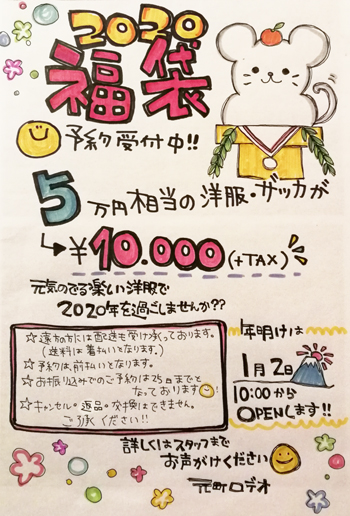 2020
福袋
予約受付中!!
5万円相当の洋服・ザッカが
↳¥10.000(+TAX)
元気のでる楽しい洋服で
2020年を過ごしませんか??
☆遠方の方には配達も受け承っております。
(送料は着払いとなります。)
☆予約は、前払いとなります。
☆お振り込みでのご予約は25日までと
なっております
☆キャンセル・返品・交換はできません。
ご了承ください!!
年明けは
1月2日
10:00から
OPENします!!
詳しくはスタッフまで
お声がけください
元町ロデオ